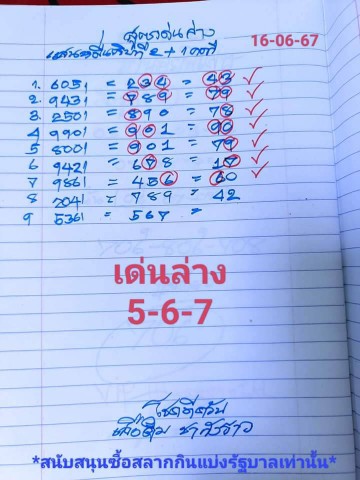 สูตรเด่นล่าง
16-06-67
1. 6051 = 234 = 43 ✓
2. 9431 = 789 = 79 ✓
3. 2501 = 890 = 78 ✓
4 9901 = 901 = 90 ✓
5 8001 = 901 = 79 ✓
6 9421 = 678 = 17 ✓
7 9861 = 456 = 60 ✓
8 7041 = 789 = 42
9 5361 = 567 =
เด่นล่าง
5-6-7
*สนับสนุนซื้อสลากกินแบ่งรัฐบาลเท่านั้น*